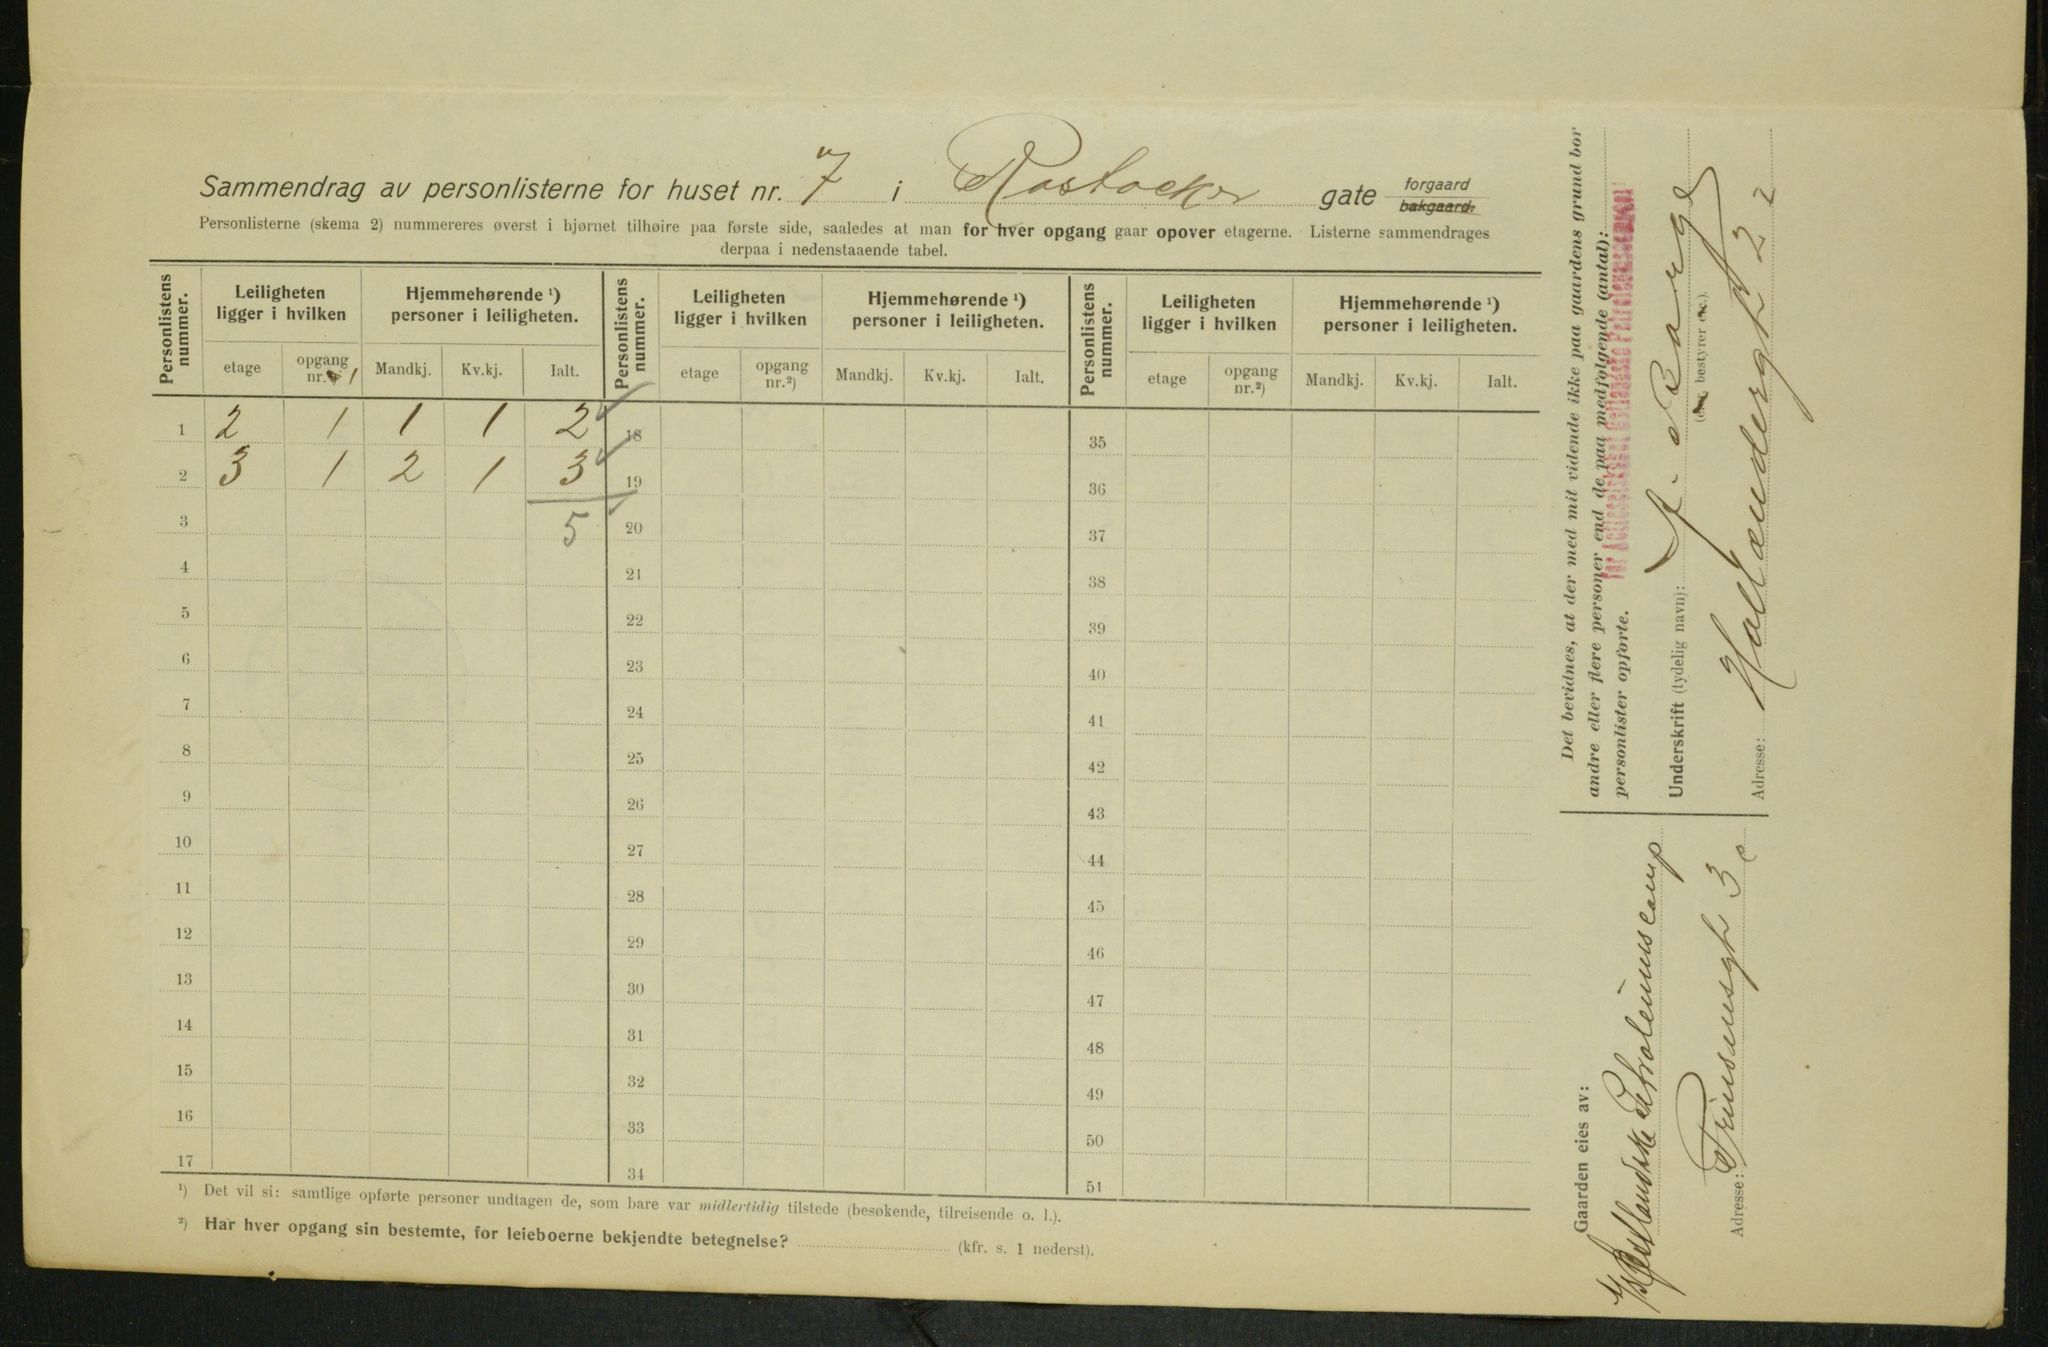 Sammendrag av personlisterne for huset nr. 7 i Rostocker gate forgaard bakgaard.
Personlisterne (skema 2) nummereres øverst i hjørnet tilhøire paa første side, saaledes at man for hver opgang gaar opover etagerne. Listerne sammendrages
derpaa i nedenstaaende tabel.
Personlistens nummer. Leiligheten ligger i hvilken Hjemmehørende ¹) personer i leiligheten. Personlistens nummer. Leiligheten ligger i hvilken Hjemmehørende ¹) personer i leiligheten. Personlistens nummer. Leiligheten ligger i hvilken Hjemmehørende ¹) personer i leiligheten.
etage opgang nr. 1 Mandkj. Kv.kj. Ialt. etage opgang nr.²) Mandkj. Kv.kj. Ialt. etage opgang nr.²) Mandkj. Kv.kj. Ialt.
1 2 1 1 1 2 18 35
2 3 1 2 1 3 19 36
3 5 20 37
4 21 38
5 22 39
6 23 40
7 24 41
8 25 42
9 26 43
10 27 44
11 28 45
12 29 46
13 30 47
14 31 48
15 32 49
16 33 50
17 34 51
¹) Det vil si: samtlige opførte personer undtagen de, som bare var midlertidig tilstede (besøkende, tilreisende o. l.).
²) Har hver opgang sin bestemte, for leieboerne bekjendte betegnelse? (kfr. s. 1 nederst).
Det bevidnes, at der med mit vidende ikke paa gaardens grund bor
andre eller flere personer end de paa medfølgende (antal):
personlister opførte.
Underskrift (tydelig navn): J. Borge
(eier, bestyrer etc.).
Adresse: Hollændergt 22
Gaarden eies av:
Vestlandske Petroleumscomp
Adresse: Prinsensgt 3 c